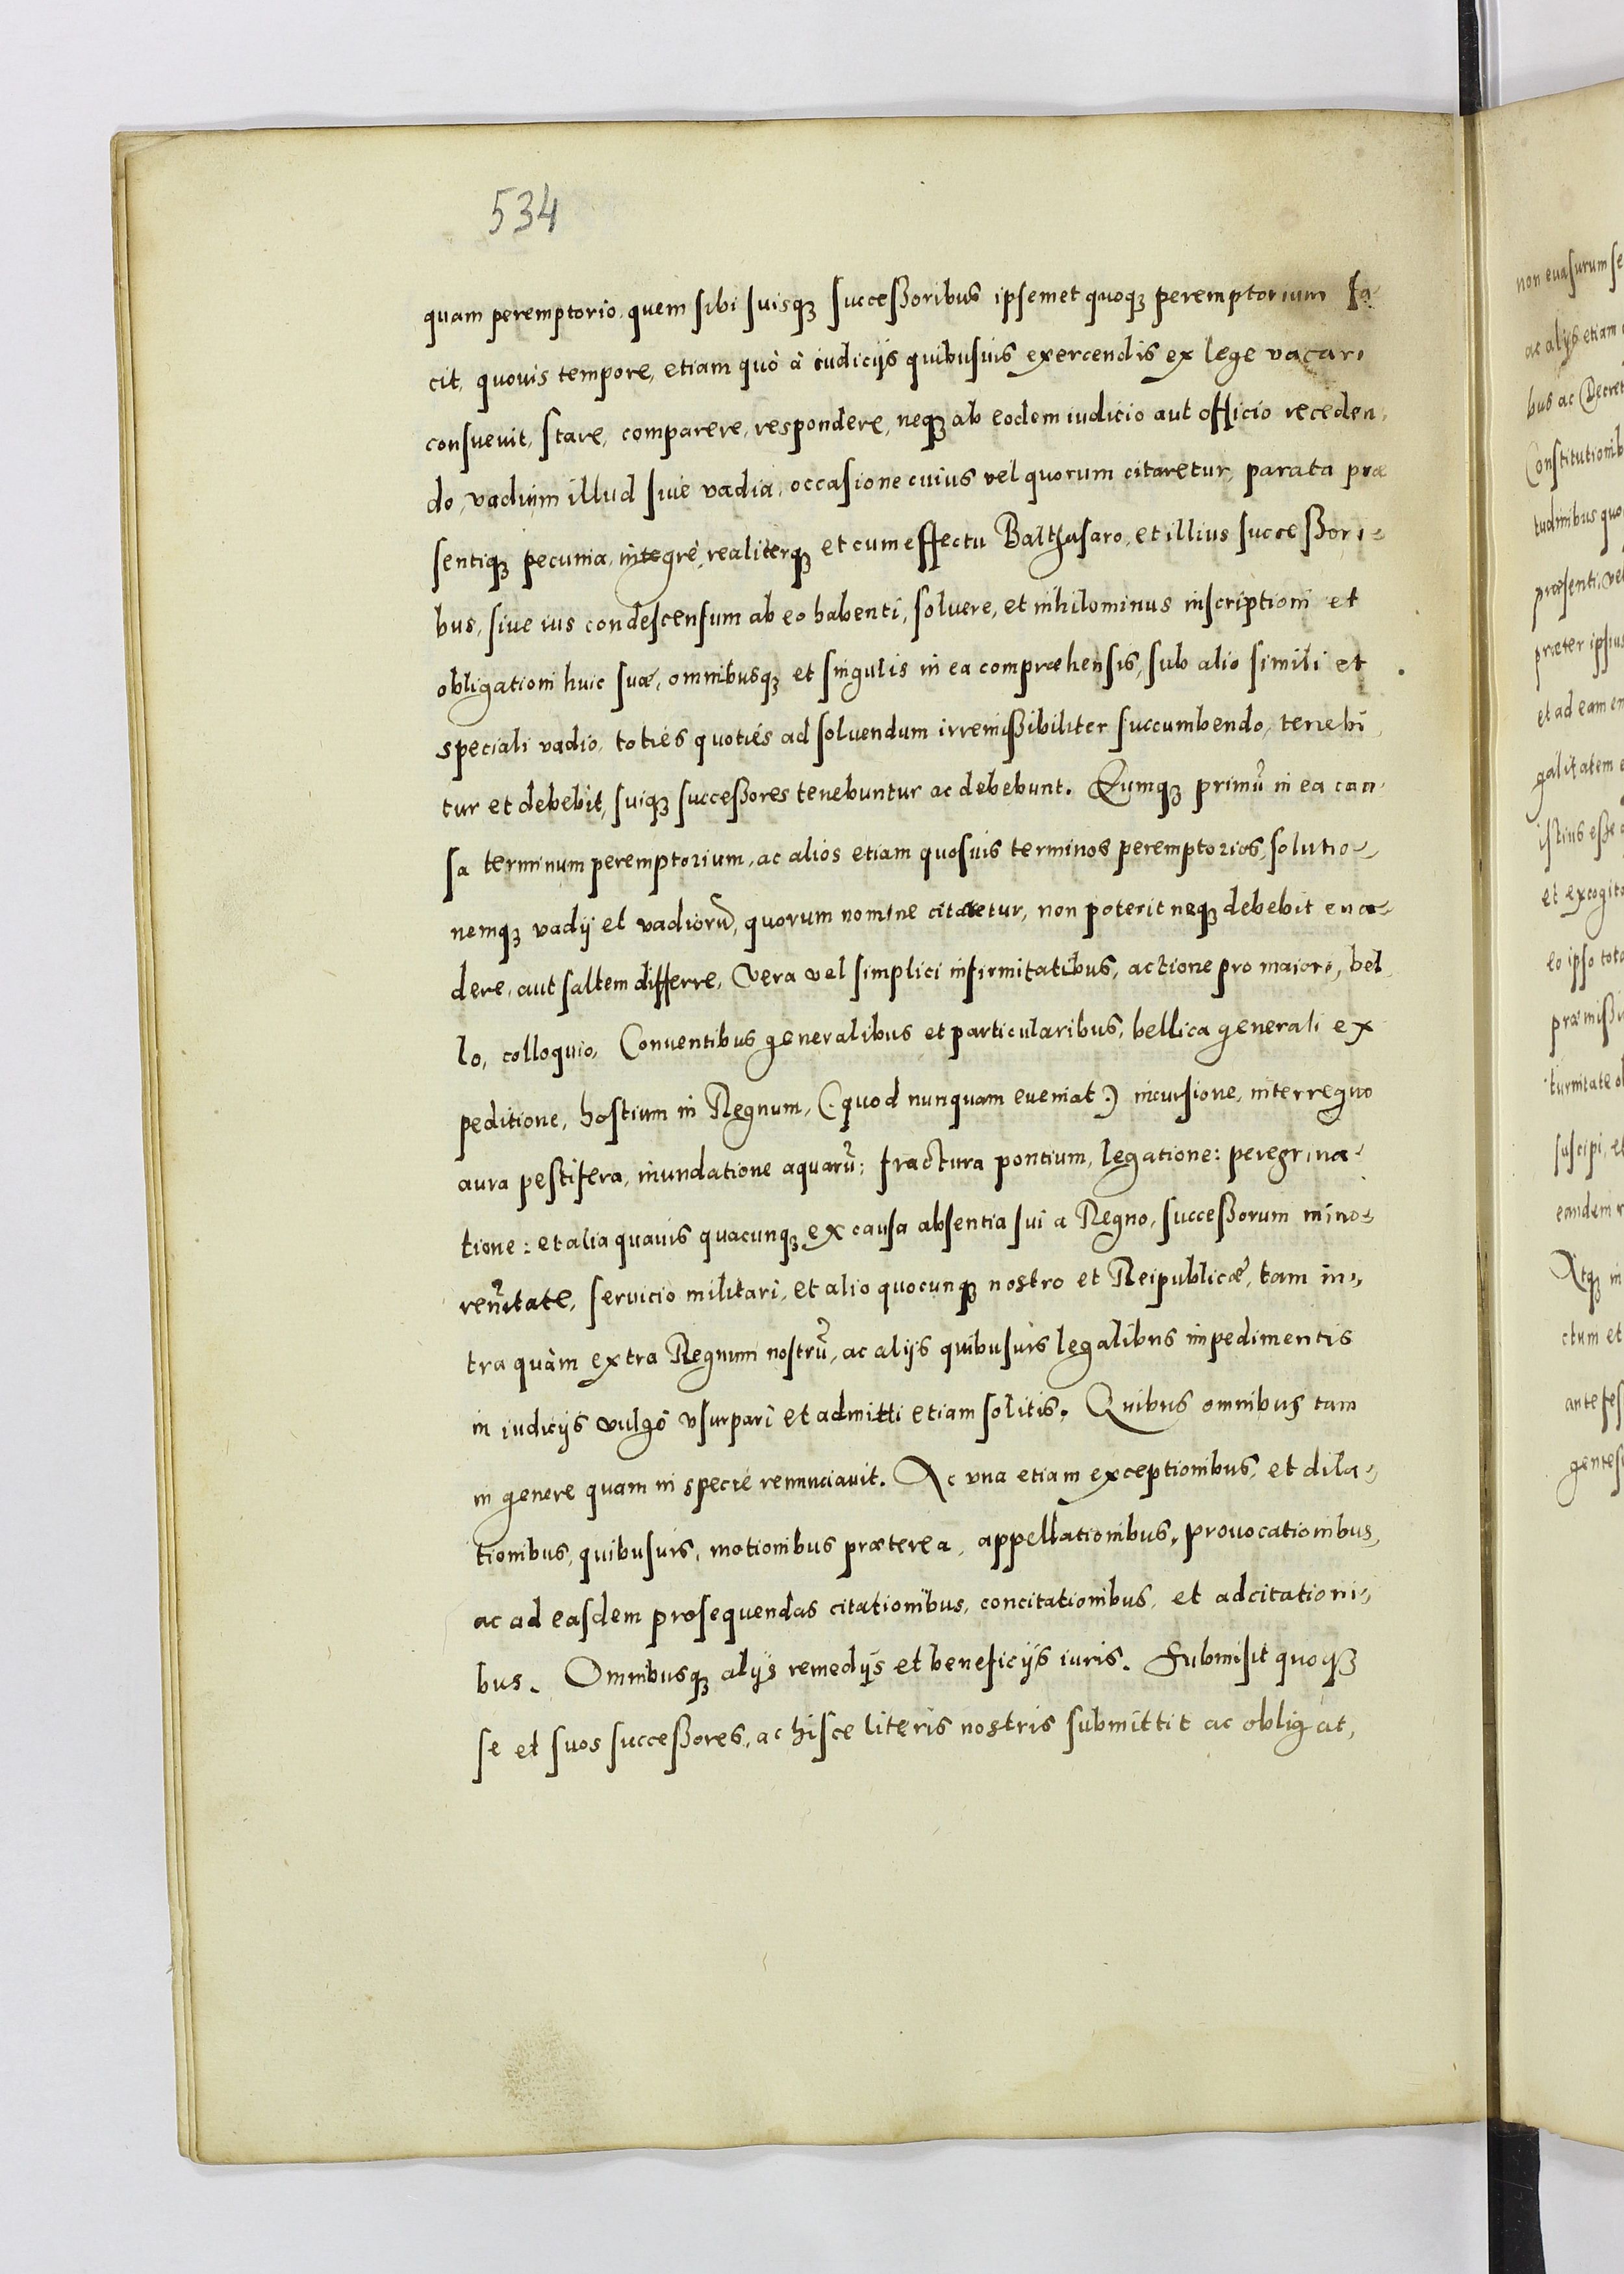 534
quam peremptorio, quem sibi suisq; successoribus ipsemet quoq; peremptorium fa-
cit, quouis tempore, etiam quo à iudicijs quibusuis exercendis ex lege vacari
consueuit, stare, comparere, respondere, neq; ab eodem iudicio aut officio receden-
do, vadium illud siue vadia, occasione cuius vel quorum citaretur, parata præ
sentiq; pecunia, integrè, realiterq; et cum effectu Balthasaro, et illius successori-
bus, siue ius condescensum ab eo habenti, soluere, et nihilominus inscriptioni et
obligationi huic suæ, omnibusq; et singulis in ea compræhensis, sub alio simili et
speciali vadio, toties quoties ad soluendum irremissibiliter succumbendo, tenebi
tur et debebit, suiq; successores tenebuntur ac debebunt. Eumq; primũ in ea cau-
sa terminum peremptorium, ac alios etiam quosuis terminos peremptorios, solutio-
nemq; vadij et vadiorũ, quorum nomine citaretur, non poterit neq; debebit eua-
dere, aut saltem differre, Vera vel simplici infirmitatibus, actione pro maiori, bel
lo, colloquio, Conuentibus generalibus et particularibus, bellica generali ex
peditione, hostium in Regnum, (quod nunquam eueniat) incursione, interregno
aura pestifera, inundatione aquarũ; fractura pontium, legatione: peregrina-
tione: et alia quauis quacunq; ex causa absentia sui a Regno, successorum mino-
rẽnitate, seruicio militari, et alio quocunq; nostro et Reipublicæ, tam in-
tra quàm extra Regnum nostrũ, ac alijs quibusuis legalibus impedimentis
in iudicijs vulgò vsurpari et admitti etiam solitis. Quibus omnibus tam
in genere quam in specie renunciauit. Ac vna etiam exceptionibus, et dila-
tionibus, quibusuis, motionibus præterea, appellationibus, prouocationibus,
ac ad easdem prosequendas citationibus, concitationibus, et adcitationi-
bus. Omnibusq; alijs remedijs et beneficijs iuris. Submisit quoq;
se et suos successores, ac hisce literis nostris submittit ac obligat,
non euasurum se
ac alijs etiam
bus ac Decret
Constitutionib
tudinibus quo
præsenti, vel
præter ipsius
et ad eam em
galitatem e
istius esse
et excogita
eo ipso tota
præmissi
turnitate ob
suscipi, et
eandem r
Atq; in
ctum et
ante fes
gentes